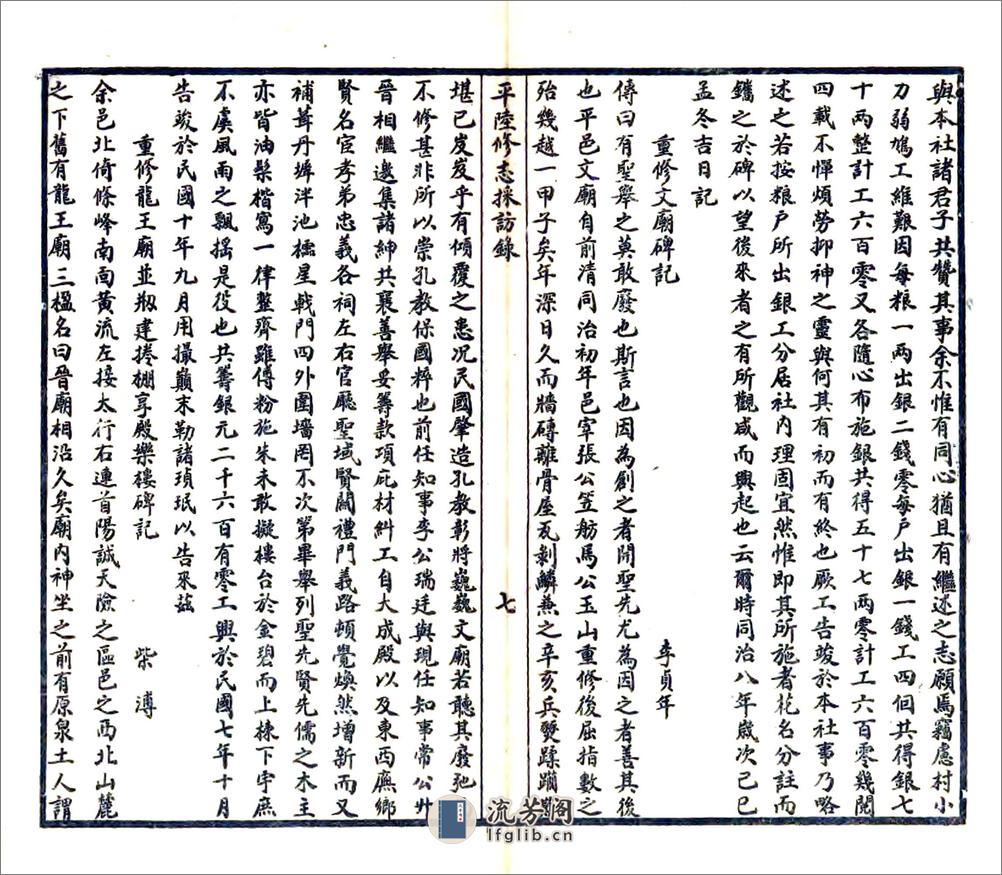 與本社諸君子共贊其事余不惟有同心猶且有繼述之志願焉竊慮村小
力弱鳩工維艱因每粮一兩出銀二錢零每戶出銀一錢工四個共得銀七
十兩整計工六百零又各隨心布施銀共得五十七兩零計工六百零幾閱
四載不憚煩勞抑神之靈與何其有初而有終也厥工告竣於本社事乃略
述之若按粮戶所出銀工分居社內理固宜然惟即其所施者花名分註而
鐫之於碑以望後來者之有所觀感而興起也云爾時同治八年歲次己巳
孟冬吉日記
重修文廟碑記 李貞年
傳曰有聖舉之莫敢廢也斯言也因為創之者開聖先尤為因之者善其後
也平邑文廟自前清同治初年邑宰張公笠舫馬公玉山重修後屈指數之
殆幾越一甲子矣年深日久而牆磚離骨屋瓦剝鱗兼之辛亥兵燹蹂躪
平陸修志採訪錄 七
堪已岌岌乎有傾覆之患况民國肇造孔教彰將巍巍文廟若聽其廢弛
不修甚非所以崇孔教保國粹也前任知事李公瑞廷與現任知事常公廾
晉相繼邀集諸紳共襄善舉妥籌款項庇材糾工自大成殿以及東西廡鄉
賢名宦孝弟忠義各祠左右官廳聖域賢關禮門義路頓覺煥然增新而又
補葺丹墀泮池櫺星戟門四外圍墻罔不次第畢舉列聖先賢先儒之木主
亦皆油髹楷寫一律整齊雖傅粉施朱未敢擬樓台於金碧而上棟下宇庶
不虞風雨之飄搖是役也共籌銀元二千六百有零工興於民國七年十月
告竣於民國十年九月用撮巔末勒諸瑱珉以告來茲
重修龍王廟並剏建捲棚享殿樂樓碑記 柴溥
余邑北倚條峰南面黃流左接太行右連首陽誠天險之區邑之西北山麓
之下舊有龍王廟三楹名曰晉廟相沿久矣廟內神坐之前有原泉土人謂
流芳閣
lfglib.cn